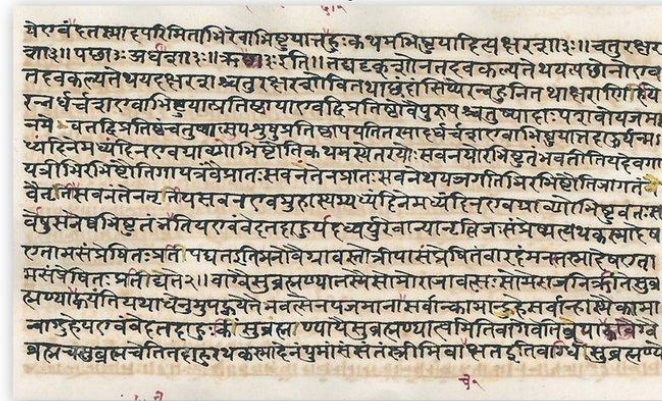 यएवंवेदतस्मादपरिमिताभिरेवाभिष्टुयात्तदाहुःकथमभिष्टुयादित्यक्षरशाः३ः॥चतुरक्षर
शाः३॥पछाः३ःअर्धशाः३ः॥ऋक्शाः३ःइति॥तद्यदृक्शोनतदवकल्पतेथयत्पछोनोएव
तदवकल्पतेथयदक्षरशश्चतुरक्षरशोवितथाछंदांसिलुप्येरन्बहूनितथाक्षराणिहीये
रन्नर्धर्चशएवाभिष्टुयात्प्रतिष्ठायाएवद्विप्रतिष्ठोवैपुरुषश्चतुष्पादाःपशवोयजमा
नमेवतद्द्विप्रतिष्ठंचतुष्पात्सुपशुषुप्रतिष्ठापयतितस्मादर्धर्चशएवाभिष्टुयात्तदाहुर्यन्म
ध्यंदिनेमध्यंदिनएवग्राव्णोभिष्टौतिकथमस्येतरयोःसवनयोरभिष्टुतंभवतीतियदेवगा
यत्रीभिरभिष्टौतिगायत्रंवैप्रातःसवनंतेनप्रातःसवनेथयज्जगतीभिरभिष्टौतिजागतं
वैतृतीयसवनंतेनतृतीयसवनएवमुहास्यमध्यंदिनेमध्यंदिनएवग्राव्णोभिष्टुवतःस
र्वेषुसवनेष्वभिष्टुतंभवतियएवंवेदतदाहुर्यदध्वर्युरेवान्यानृत्विजःसंप्रेष्यत्यथकस्मादेष
एतामसंप्रेषितःप्रतिपद्यतइतिमनोवैग्रावस्तोत्रीयासंप्रेषितंवाइदंमनस्तस्मादेषएता
मसंप्रेषितःप्रतिपद्यते२॥वाग्वैसुब्रह्मण्यातस्यैसोमोराजावत्सःसोमेराजनिक्रीतेसुब्र
ह्मण्यामाह्वयंतियथाधेनुमुपह्वयेत्तेनवत्सेनयजमानायसर्वान्कामान्दुहेसर्वान्हास्मैकामा
न्वाग्दुहेयएवंवेदतदाहुःकिंसुब्रह्मण्यायैसुब्रह्मण्यात्वमितिवागेवेतिब्रूयाद्वाग्वै
ब्रह्मचसुब्रह्मचेतितदाहुरथकस्मादेनंपुमांसंसंतंस्त्रीमिवाचक्षतइतिवाग्घिसुब्रह्मण्ये